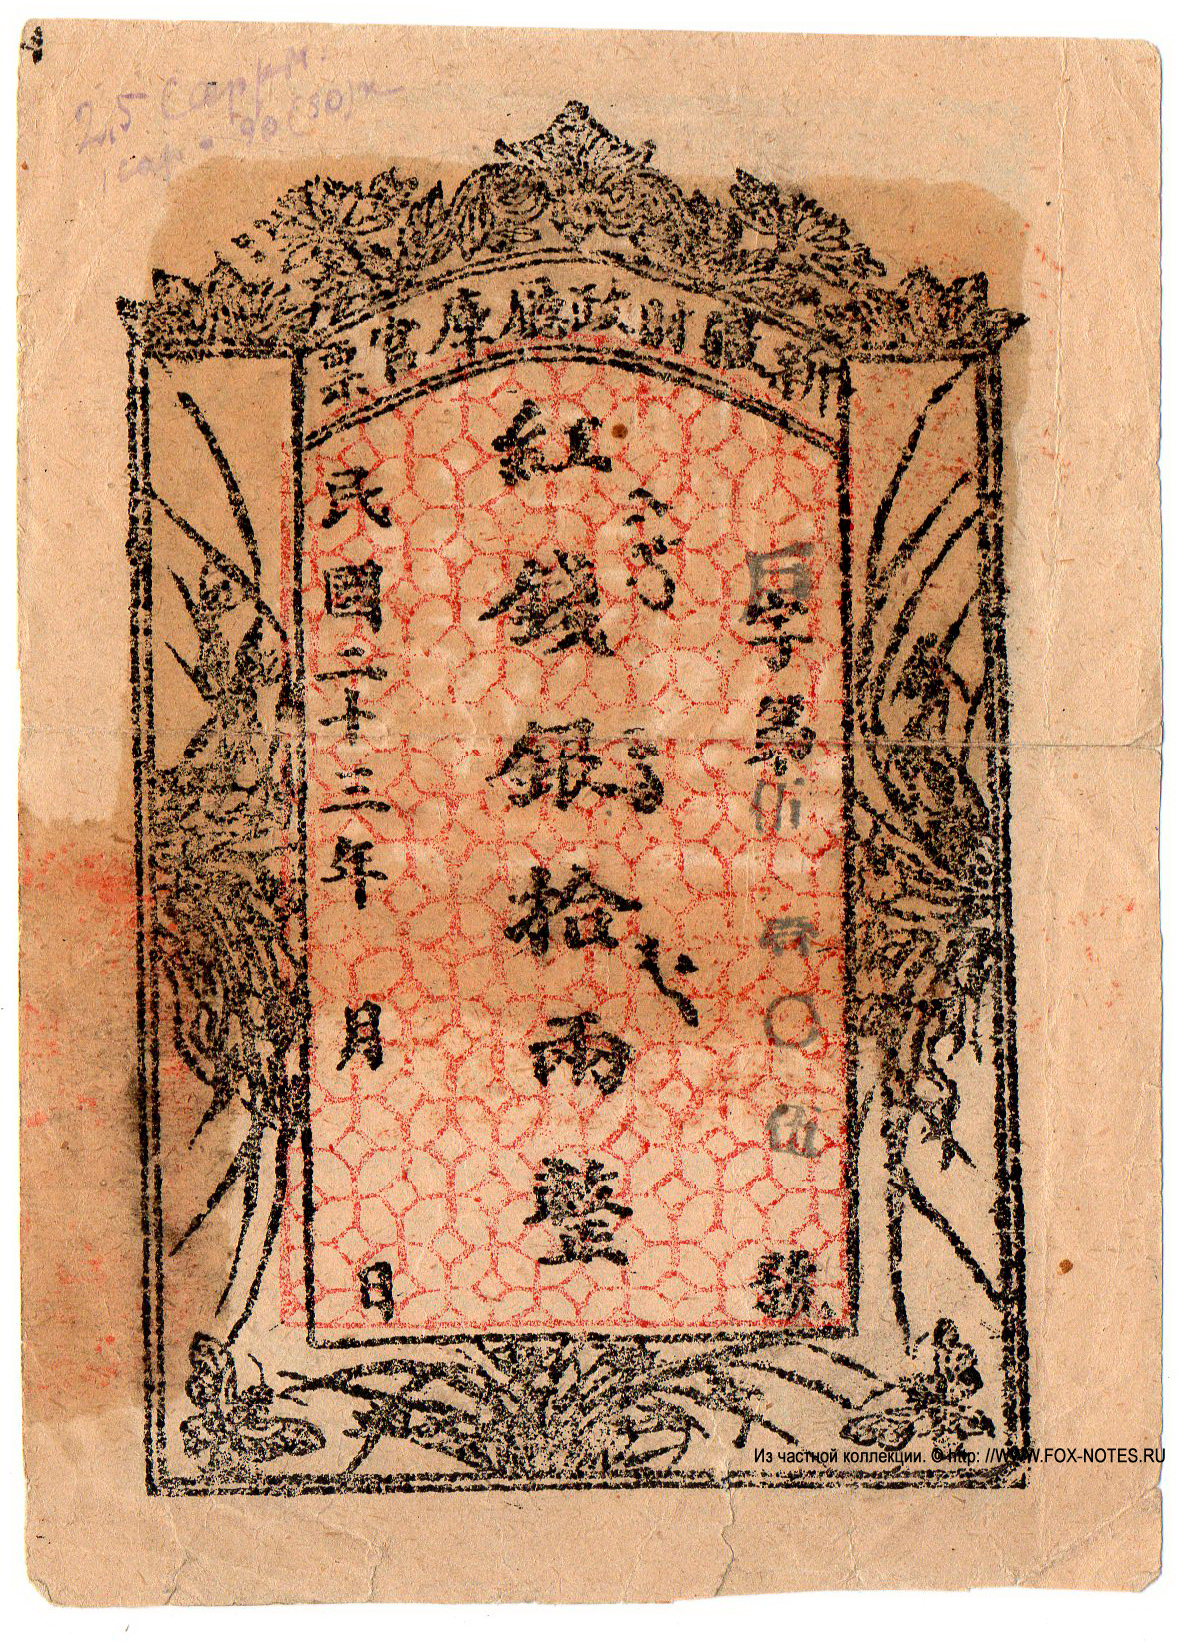 2,5 сарж.
新疆財政廳庫官票
字第伍百〇伍號
紅錢銀拾兩整
民國二十三年 月 日
Из частной коллекции. © http: //WWW.FOX-NOTES.RU